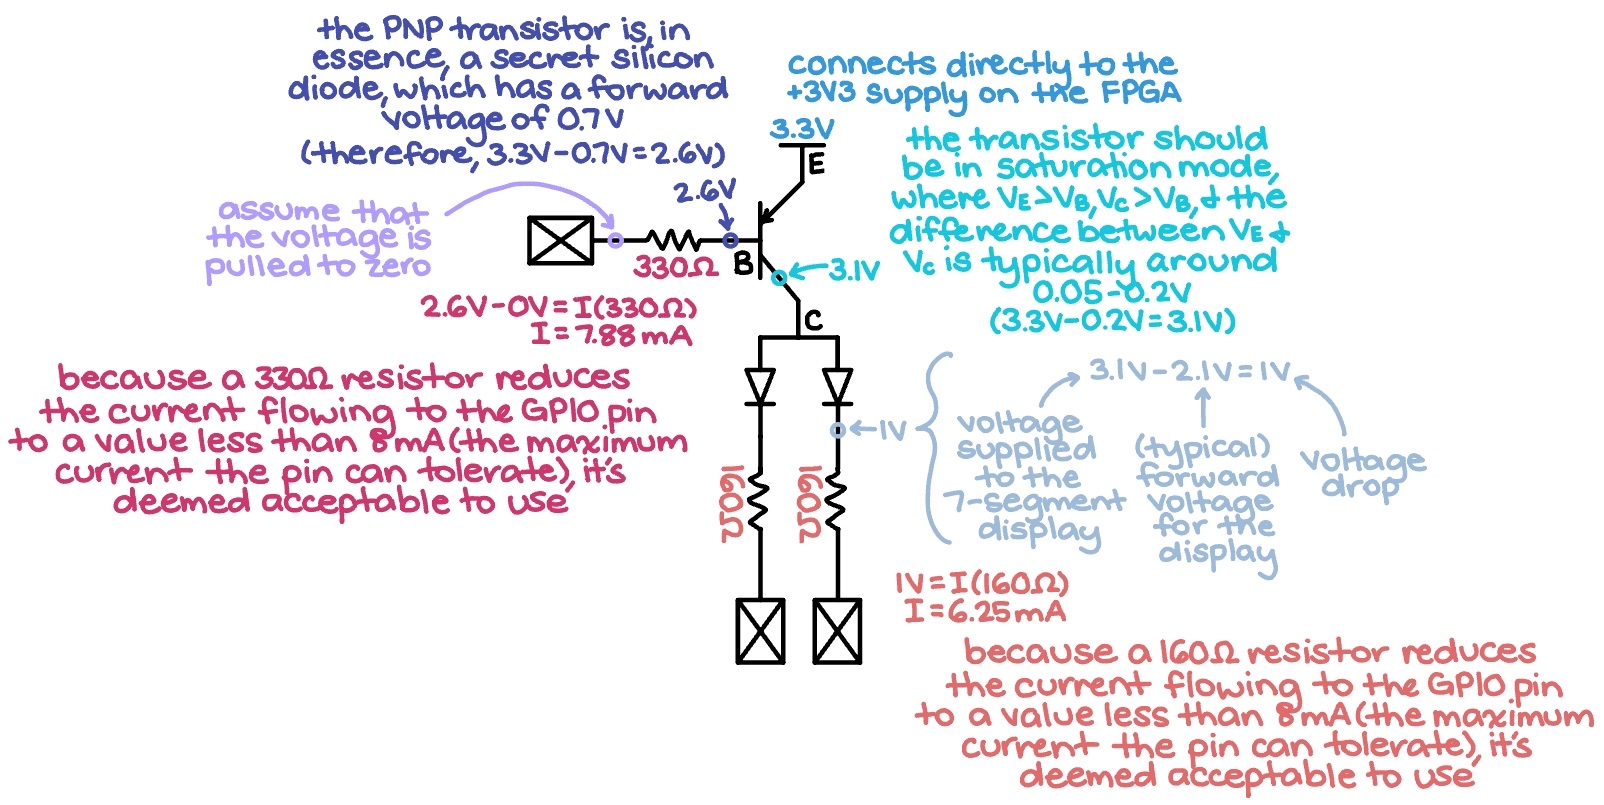 the PNP transistor is, in
essence, a secret silicon
diode, which has a forward
voltage of 0.7V
(therefore, 3.3V-0.7V=2.6V)
connects directly to the
+3V3 supply on the FPGA
3.3V
E
the transistor should
be in saturation mode,
where VE>VB, VC>VB, & the
difference between VE &
VC is typically around
0.05-0.2V
(3.3V-0.2V=3.1V)
2.6V
assume that
the voltage is
pulled to zero
330Ω
B
3.1V
C
2.6V-0V=I(330Ω)
I=7.88mA
because a 330Ω resistor reduces
the current flowing to the GPIO pin
to a value less than 8mA (the maximum
current the pin can tolerate), it's
deemed acceptable to use
160Ω
160Ω
1V
3.1V-2.1V=1V
voltage
supplied
to the
7-segment
display
(typical)
forward
voltage
for the
display
voltage
drop
1V=I(160Ω)
I=6.25mA
because a 160Ω resistor reduces
the current flowing to the GPIO pin
to a value less than 8mA (the maximum
current the pin can tolerate), it's
deemed acceptable to use